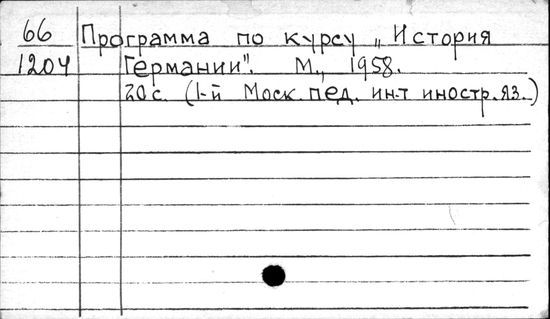 66 Программа по курсу „История
1204 Германии". М., 1958.
20 с. (1-й Моск. пед. ин-т иностр. яз.)